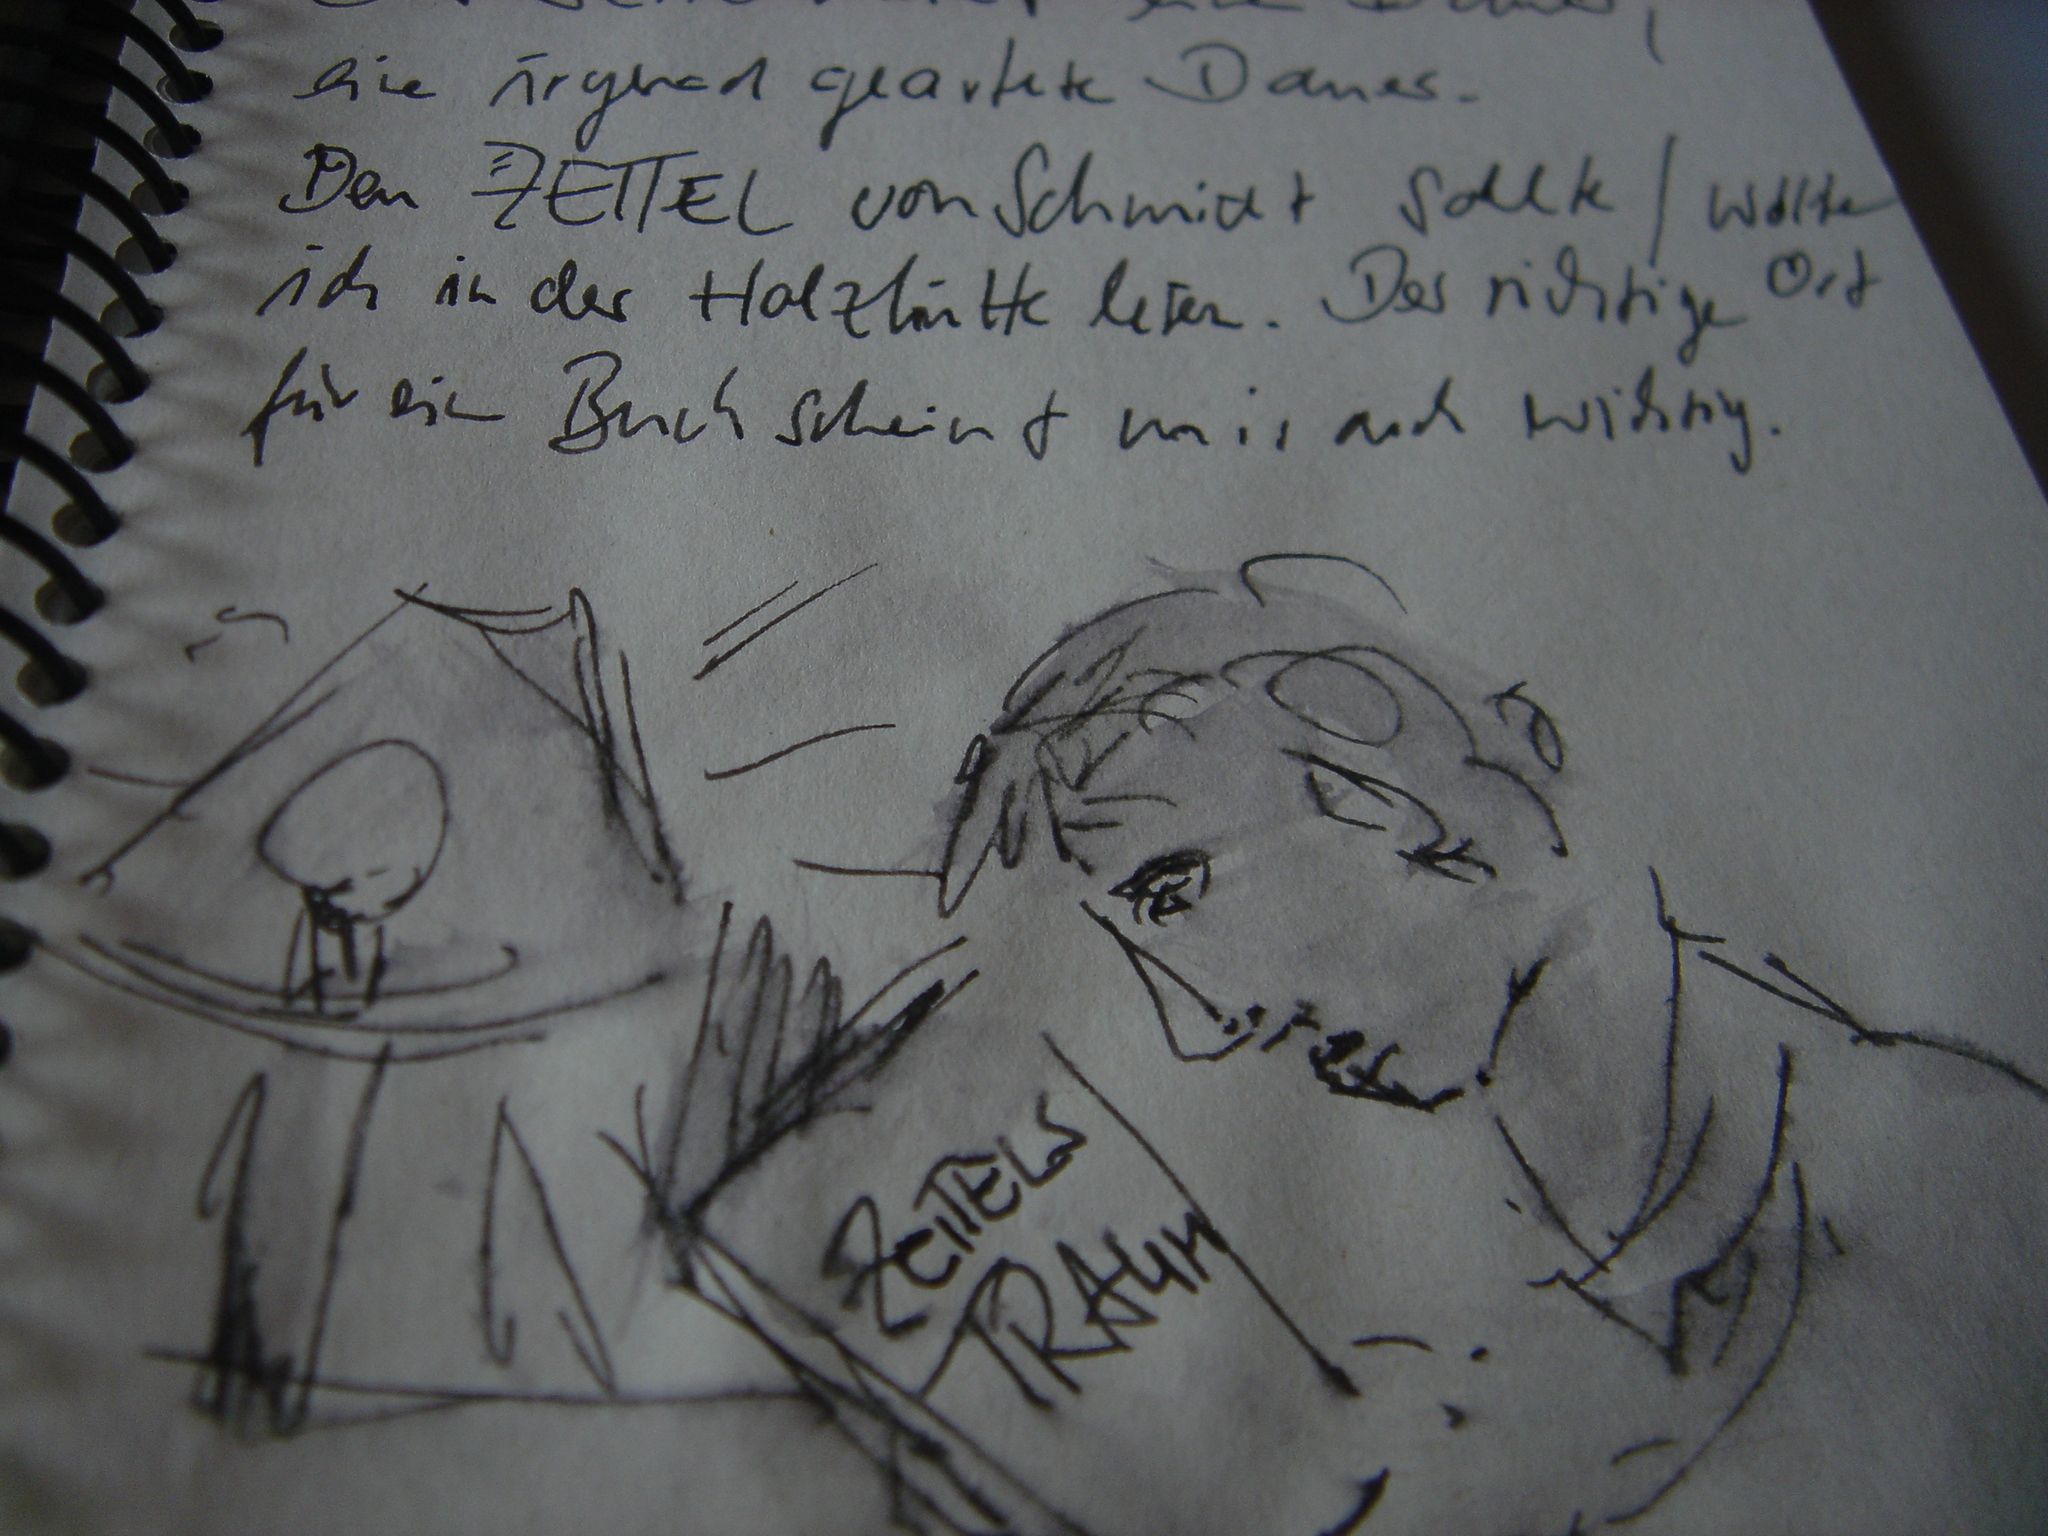 eine irgend geartete Dauer.
Den ZETTEL von Schmidt sollte / wollte
ich in der Holzhütte lesen. Der richtige Ort
für ein Buch scheint mir auch wichtig.
ZETTELS
TRAUM